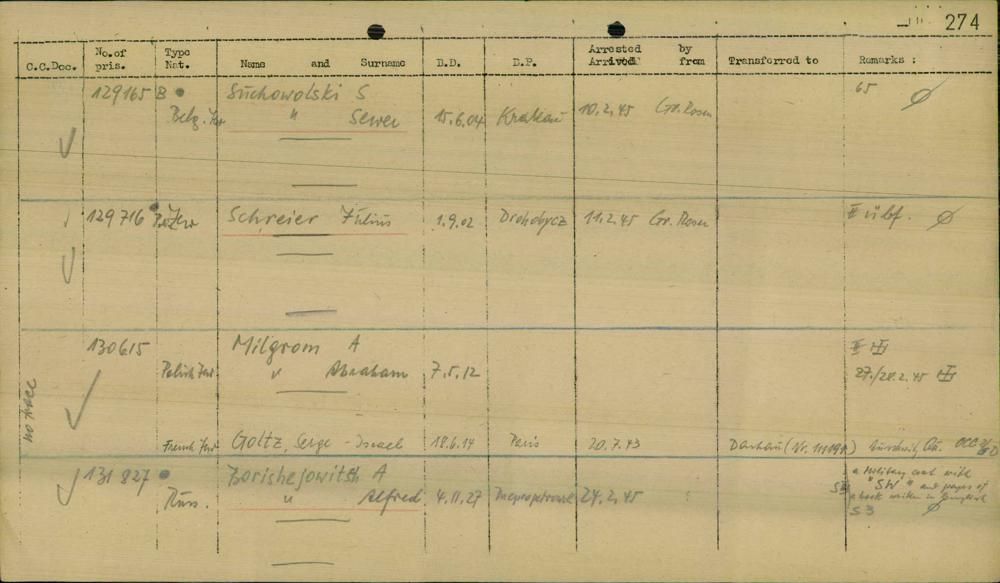 274
C.C.Doc. No.of pris. Type Nat. Name and Surname B.D. B.P. Arrested Arrived by from Transferred to Remarks :
129165 B Suchowolski S 65
Belg. Jew " Sewer 15.6.04 Krakau 10.2.45 Gr. Rosen
129716 Jew Schreier Julius 1.9.02 Drohobycz 11.2.45 Gr. Rosen II übf.
130615 Milgrom A II III
Polish Jew " Abraham 7.5.12 27./28.2.45 III
no trace
French Jew Goltz, Serge - Israel 18.6.14 Paris 20.7.43 Dachau (Nr. ) Auschwitz
131827 Borishejowitsch A a military coat with
Russ. " Alfred 4.11.27 Dnepropetrowsk 24.2.45 "SW" and pages of
a book written in English
S 3